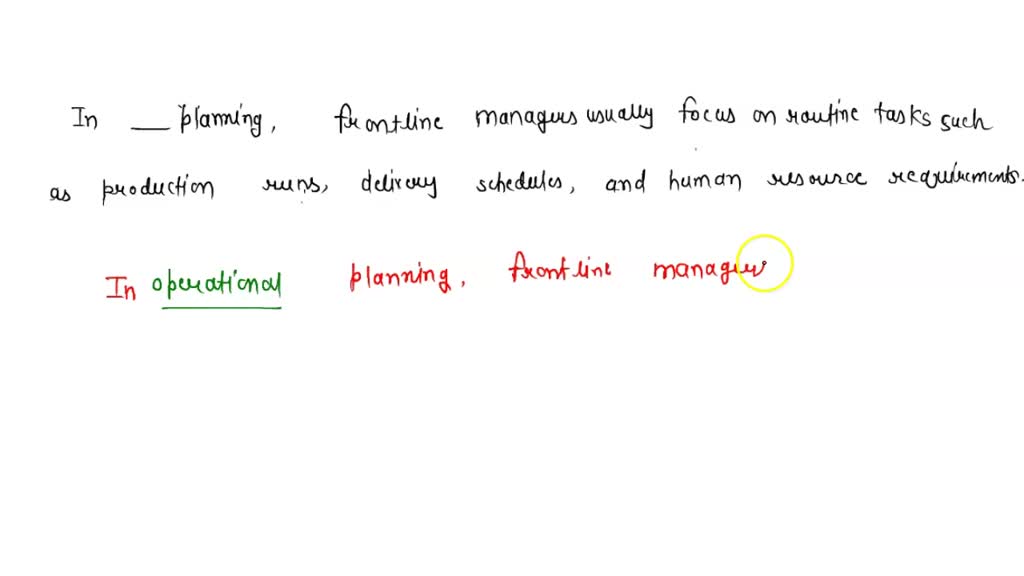 In ___ planning, frontline managers usually focus on routine tasks such
as production runs, delivery schedules, and human resource requirements.
In operational planning, frontline manager